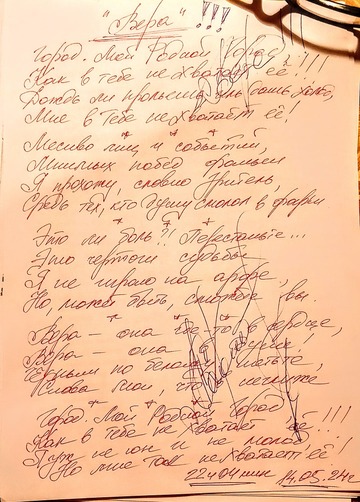 "Вера"!!!
Город. Мой Родной Город,
Как в тебе не хватает её!!!
Дождь ли прольёшь, иль
Мне в тебе не хватает её!
Месиво лиц и событий,
Мнимых побед фальши
Я прохожу, словно зритель,
Средь тех, кто душу в фарш
Это ли боль?! Перестаньте...
Это чертоги судьбы
Я не играю на арфе,
Но, может быть, сможете вы.
Вера – она где-то в сердце,
Вера – она
Чёрным по белому
Слова мои, что
Город. Мой Родной Город
Как в тебе не хватает её!!!
не юн и не молод,
Но мне так не хватает её!
22ч 04 мин 14.05.24г